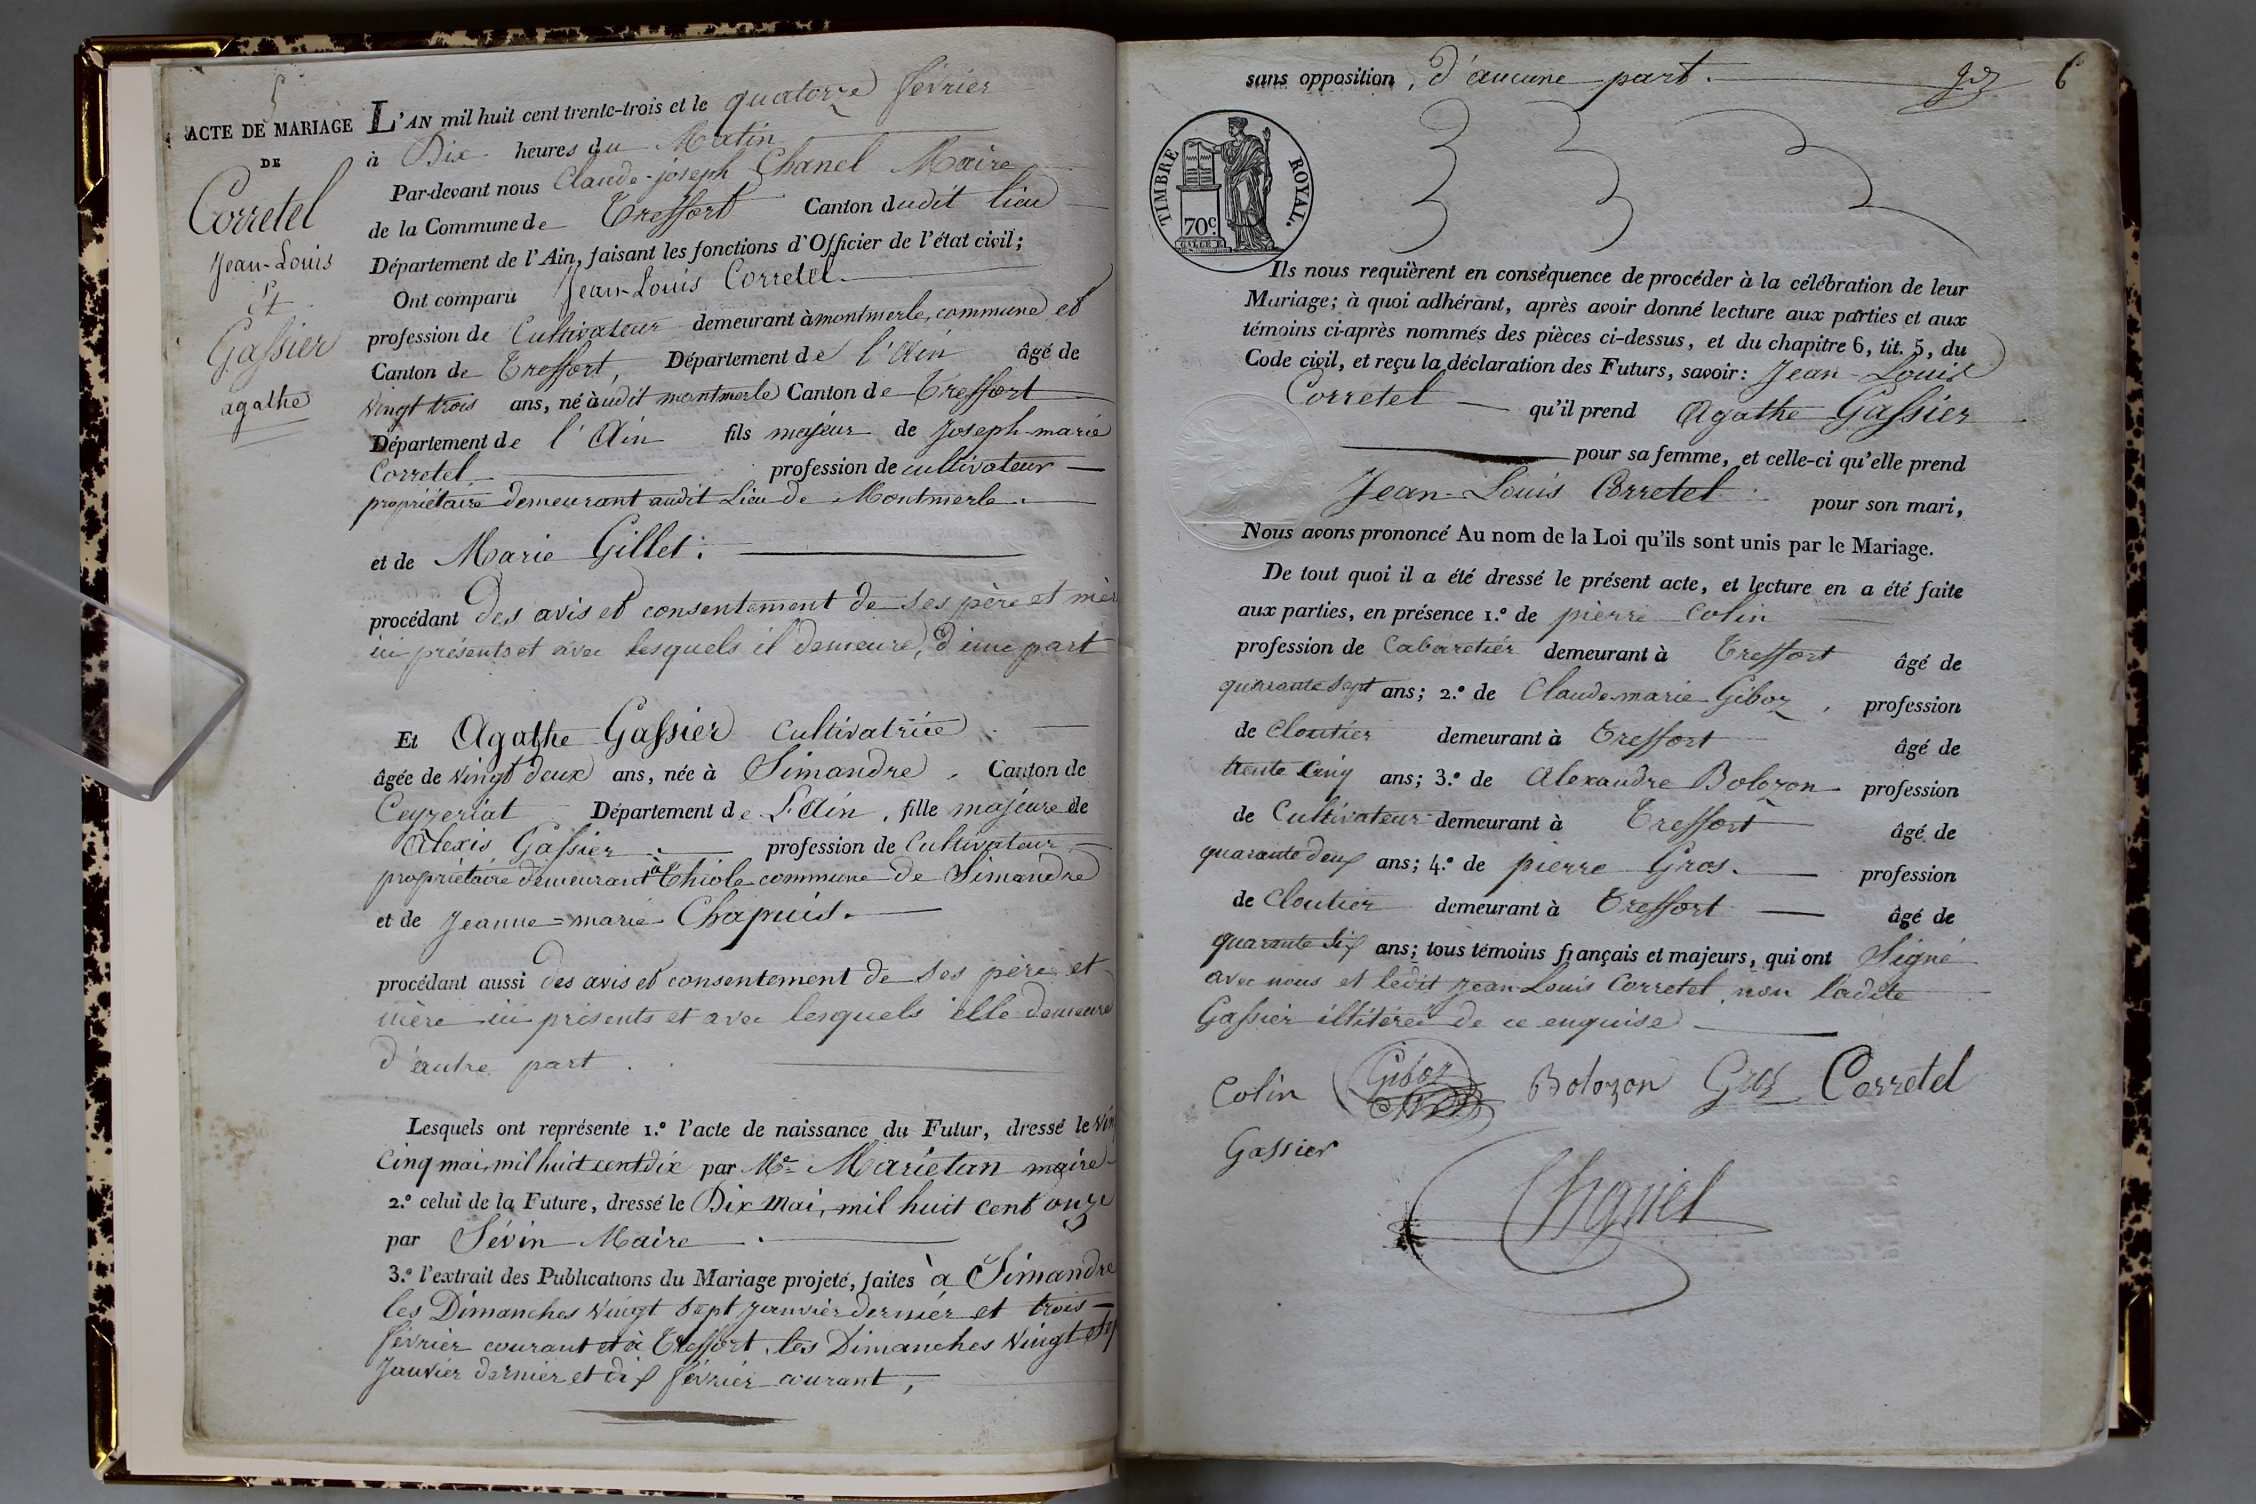 5
ACTE DE MARIAGE
DE
Corretel
Jean-Louis
Et
Gassier
agathe
L'AN mil huit cent trente-trois et le quatorze février
à Dix heures du Matin
Par-devant nous Claude-joseph Chanel Maire
de la Commune de Treffort Canton dudit lieu
Département de l'Ain, faisant les fonctions d'Officier de l'état civil;
Ont comparu Jean-Louis Corretel
profession de Cultivateur demeurant à montmerle, commune et
Canton de Treffort, Département de l'Ain âgé de
vingt trois ans, né àudit montmerle Canton de Treffort
Département de l'Ain fils majeur de Joseph-marie
Corretel profession de cultivateur
propriétaire demeurant audit Lieu de Montmerle.
et de Marie Gillet.
procédant des avis et consentement de ses père et mère
ici présents et avec lesquels il demeure, d'une part
Et Agathe Gassier cultivatrice
âgée de vingt deux ans, née à Simandre, Canton de
Ceyzeriat Département de L'Ain, fille majeure de
Alexis Gassier profession de Cultivateur
propriétaire demeurant à Thiole commune de Simandre
et de Jeanne=marie Chapuis.
procédant aussi des avis et consentement de ses père et
mère ici présents et avec lesquels elle demeure
d'autre part.
Lesquels ont représenté 1.º l'acte de naissance du Futur, dressé le
Cinq mai, mil huit cent dix par Mr Marietan maire
2.º celui de la Future, dressé le Dix Mai, mil huit cent onze
par Sévin Maire.
3.º l'extrait des Publications du Mariage projeté, faites à Simandre
les Dimanches vingt sept janvier dernier et trois
février courant et à Treffort, les Dimanches vingt sept
Janvier dernier et dix février courant,
sans opposition, d'aucune part. 6
TIMBRE ROYAL.
70c.
Ils nous requièrent en conséquence de procéder à la célébration de leur
Mariage; à quoi adhérant, après avoir donné lecture aux parties et aux
témoins ci-après nommés des pièces ci-dessus, et du chapitre 6, tit. 5, du
Code civil, et reçu la déclaration des Futurs, savoir: Jean-Louis
Corretel qu'il prend Agathe Gassier
pour sa femme, et celle-ci qu'elle prend
Jean-Louis Corretel pour son mari,
Nous avons prononcé Au nom de la Loi qu'ils sont unis par le Mariage.
De tout quoi il a été dressé le présent acte, et lecture en a été faite
aux parties, en présence 1.º de pierre Colin
profession de Cabaretier demeurant à Treffort âgé de
quarante sept ans; 2.º de Claude-marie Giboz, profession
de Cloutier demeurant à Treffort âgé de
trente cinq ans; 3.º de Alexandre Bolozon profession
de Cultivateur demeurant à Treffort âgé de
quarante deux ans; 4.º de pierre Gros. profession
de Cloutier demeurant à Treffort âgé de
quarante six ans; tous témoins français et majeurs, qui ont Signé
avec nous et ledit Jean-Louis Corretel, non ladite
Gassier illitérée de ce enquise
Colin Giboz Bolozon Gros Corretel
Gassier